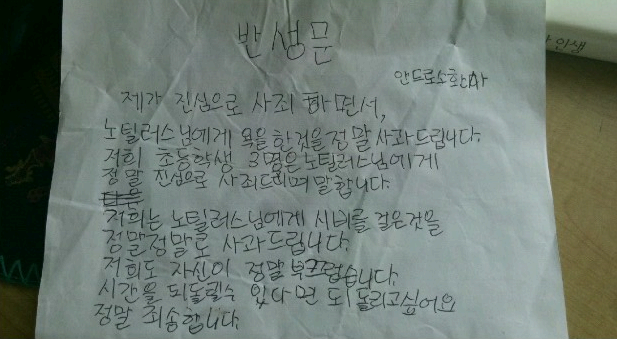 반생문
안드로소환사
제가 진심으로 사죄 하면서,
노틸러스님에게 욕을 한것을 정말 사과드립니다.
저희 초등학생 3명은 노틸러스님에게
정말 진심으로 사죄드리며 말합니다.
저희는 노틸러스님에게 시비를 걸은것을
정말정말로 사과드립니다.
저희도 자신이 정말 부끄럽습니다.
시간을 되돌릴수 있다면 되돌리고싶어요
정말 죄송합니다.
인생